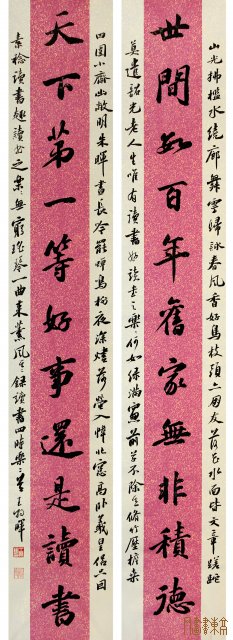 山光拂檻水繞廊舞雩歸詠春風香好鳥枝頭亦朋友落花水面皆文章蹉跎
世間數百年舊家無非積德
莫遣韶光老人生唯有讀書好讀書之樂樂何如綠滿窗前草不除修竹壓檐桑
四圍小齋幽敞明朱暉晝長吟罷蟬鳴樹夜深燼落螢入幃北窗高臥羲皇侶只因
天下第一等好事還是讀書
素稔讀書趣讀書之樂樂無窮瑤琴一曲來薰風錄讀書四時樂